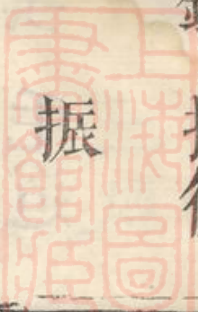 振
上海圖
書館藏